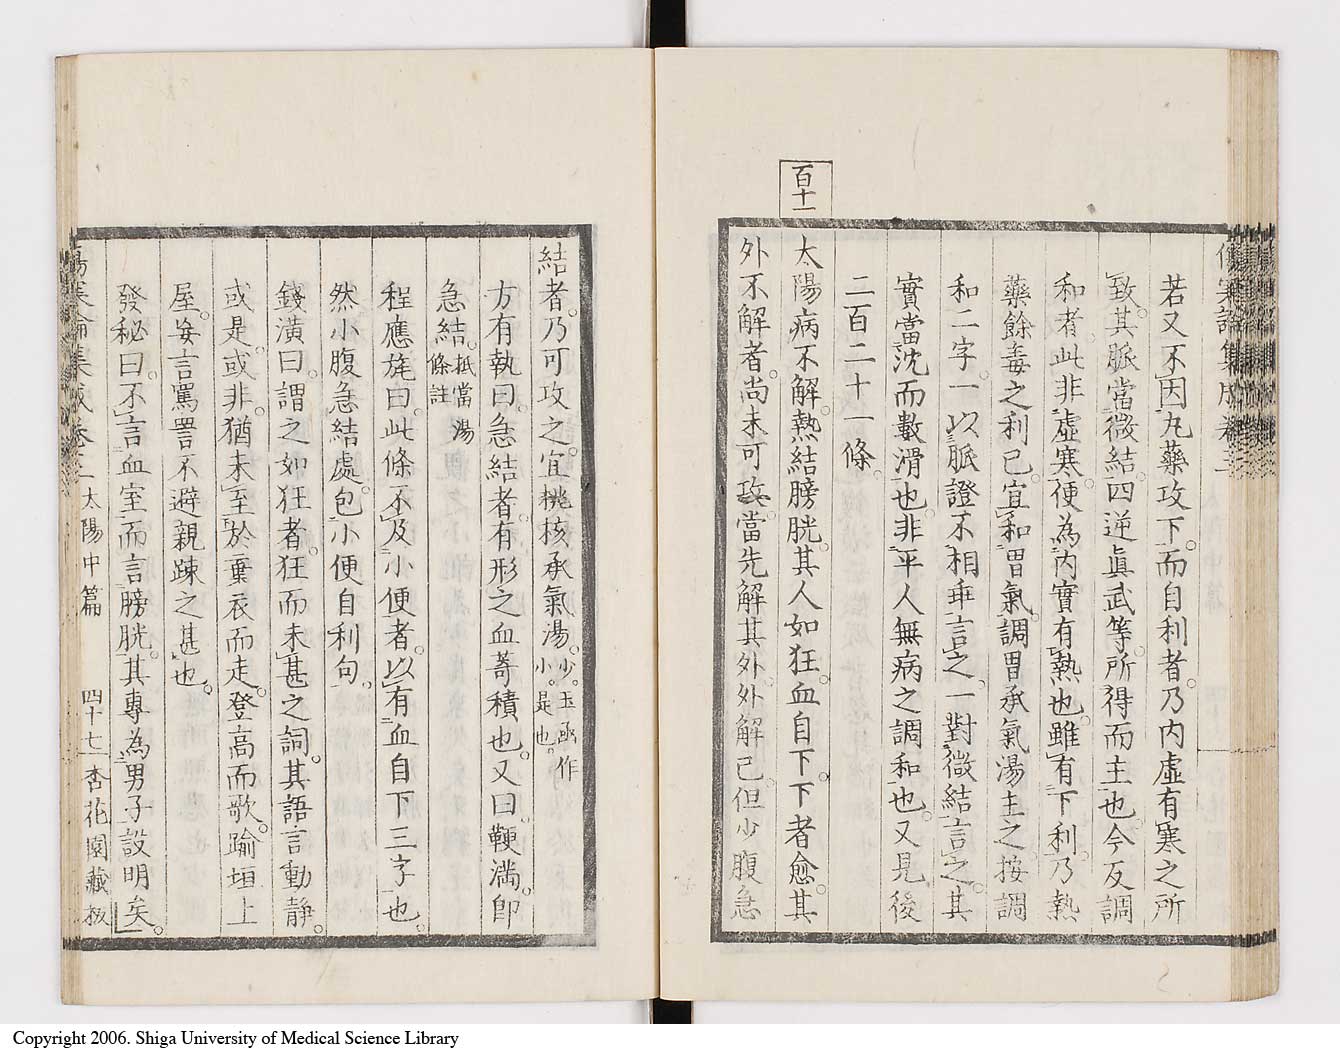 傷寒論集成卷三
若又不因丸藥攻下。而自利者。乃內虛有寒之所
致。其脈當微結。四逆眞武等。所得而主也。今反調
和者。此非虛寒。便為內實有熱也。雖有下利。乃熱
藥餘毒之利已。宜和胃氣。調胃承氣湯主之。按調
和二字。一以脈證不相乖言之。一對微結言之。其
實當沈而數滑也。非平人無病之調和也。又見後
二百二十一條。
百十一
太陽病不解。熱結膀胱。其人如狂。血自下。下者愈。其
外不解者。尚未可攻。當先解其外。外解已。但少腹急
結者。乃可攻之。宜桃核承氣湯。少。玉函作小。是也。
方有執曰。急結者。有形之血蓄積也。又曰。鞕滿。卽
急結。抵當湯條註
程應旄曰。此條不及小便者。以有血自下三字也。
然小腹急結處。包小便自利句。
錢潢曰。謂之如狂者。狂而未甚之詞。其語言動靜。
或是。或非。猶未至於棄衣而走。登高而歌。踰垣上
屋。妄言罵詈。不避親踈之甚也。
發秘曰。不言血室而言膀胱。其專為男子設明矣。
傷寒論集成卷三 太陽中篇 四十七 杏花園藏板
Copyright 2006. Shiga University of Medical Science Library